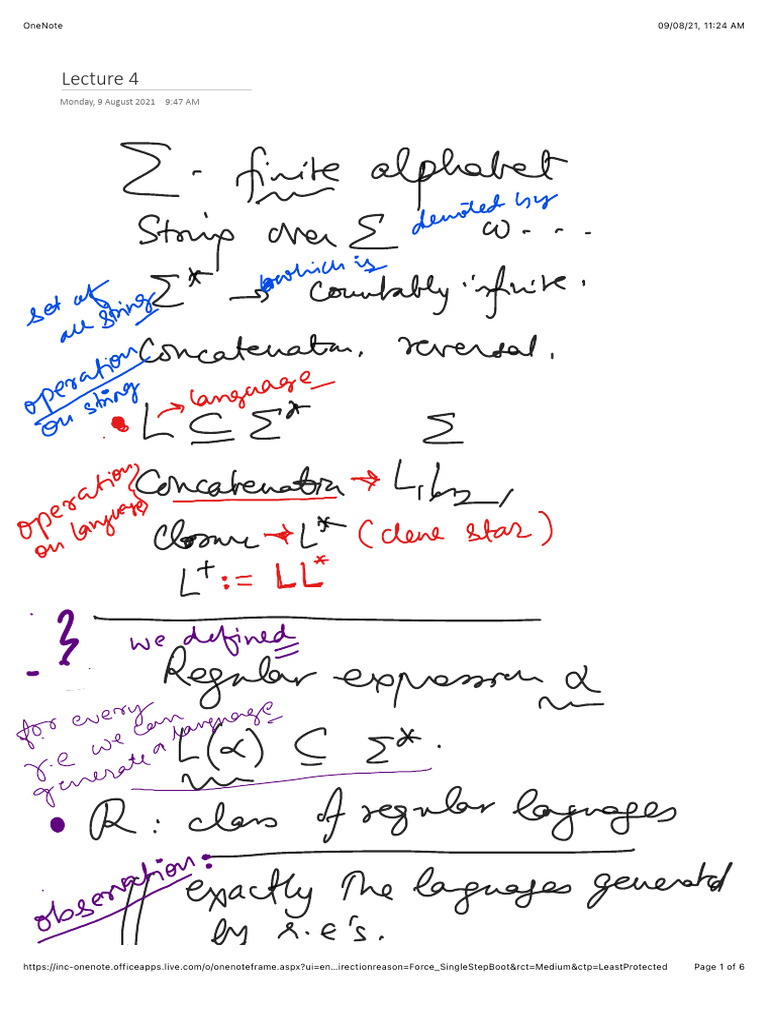 OneNote 09/08/21, 11:24 AM
Lecture 4
Monday, 9 August 2021 9:47 AM
Σ - finite alphabet
Strings over Σ denoted by ω...
set of all string Σ* → which is countably infinite.
operation on string Concatenation, reversal.
• L → language
L ⊆ Σ* Σ
operation on language } Concatenation → L₁L₂,
closure → L* (clene star)
L⁺ := LL*
we defined
Regular expression α
for every r.e we can generate a language
L(α) ⊆ Σ*.
• R : class of regular laguages
observation:
exactly the languages generated
by r.e's.
https://inc-onenote.officeapps.live.com/o/onenoteframe.aspx?ui=en...irectionreason=Force_SingleStepBoot&rct=Medium&ctp=LeastProtected Page 1 of 6